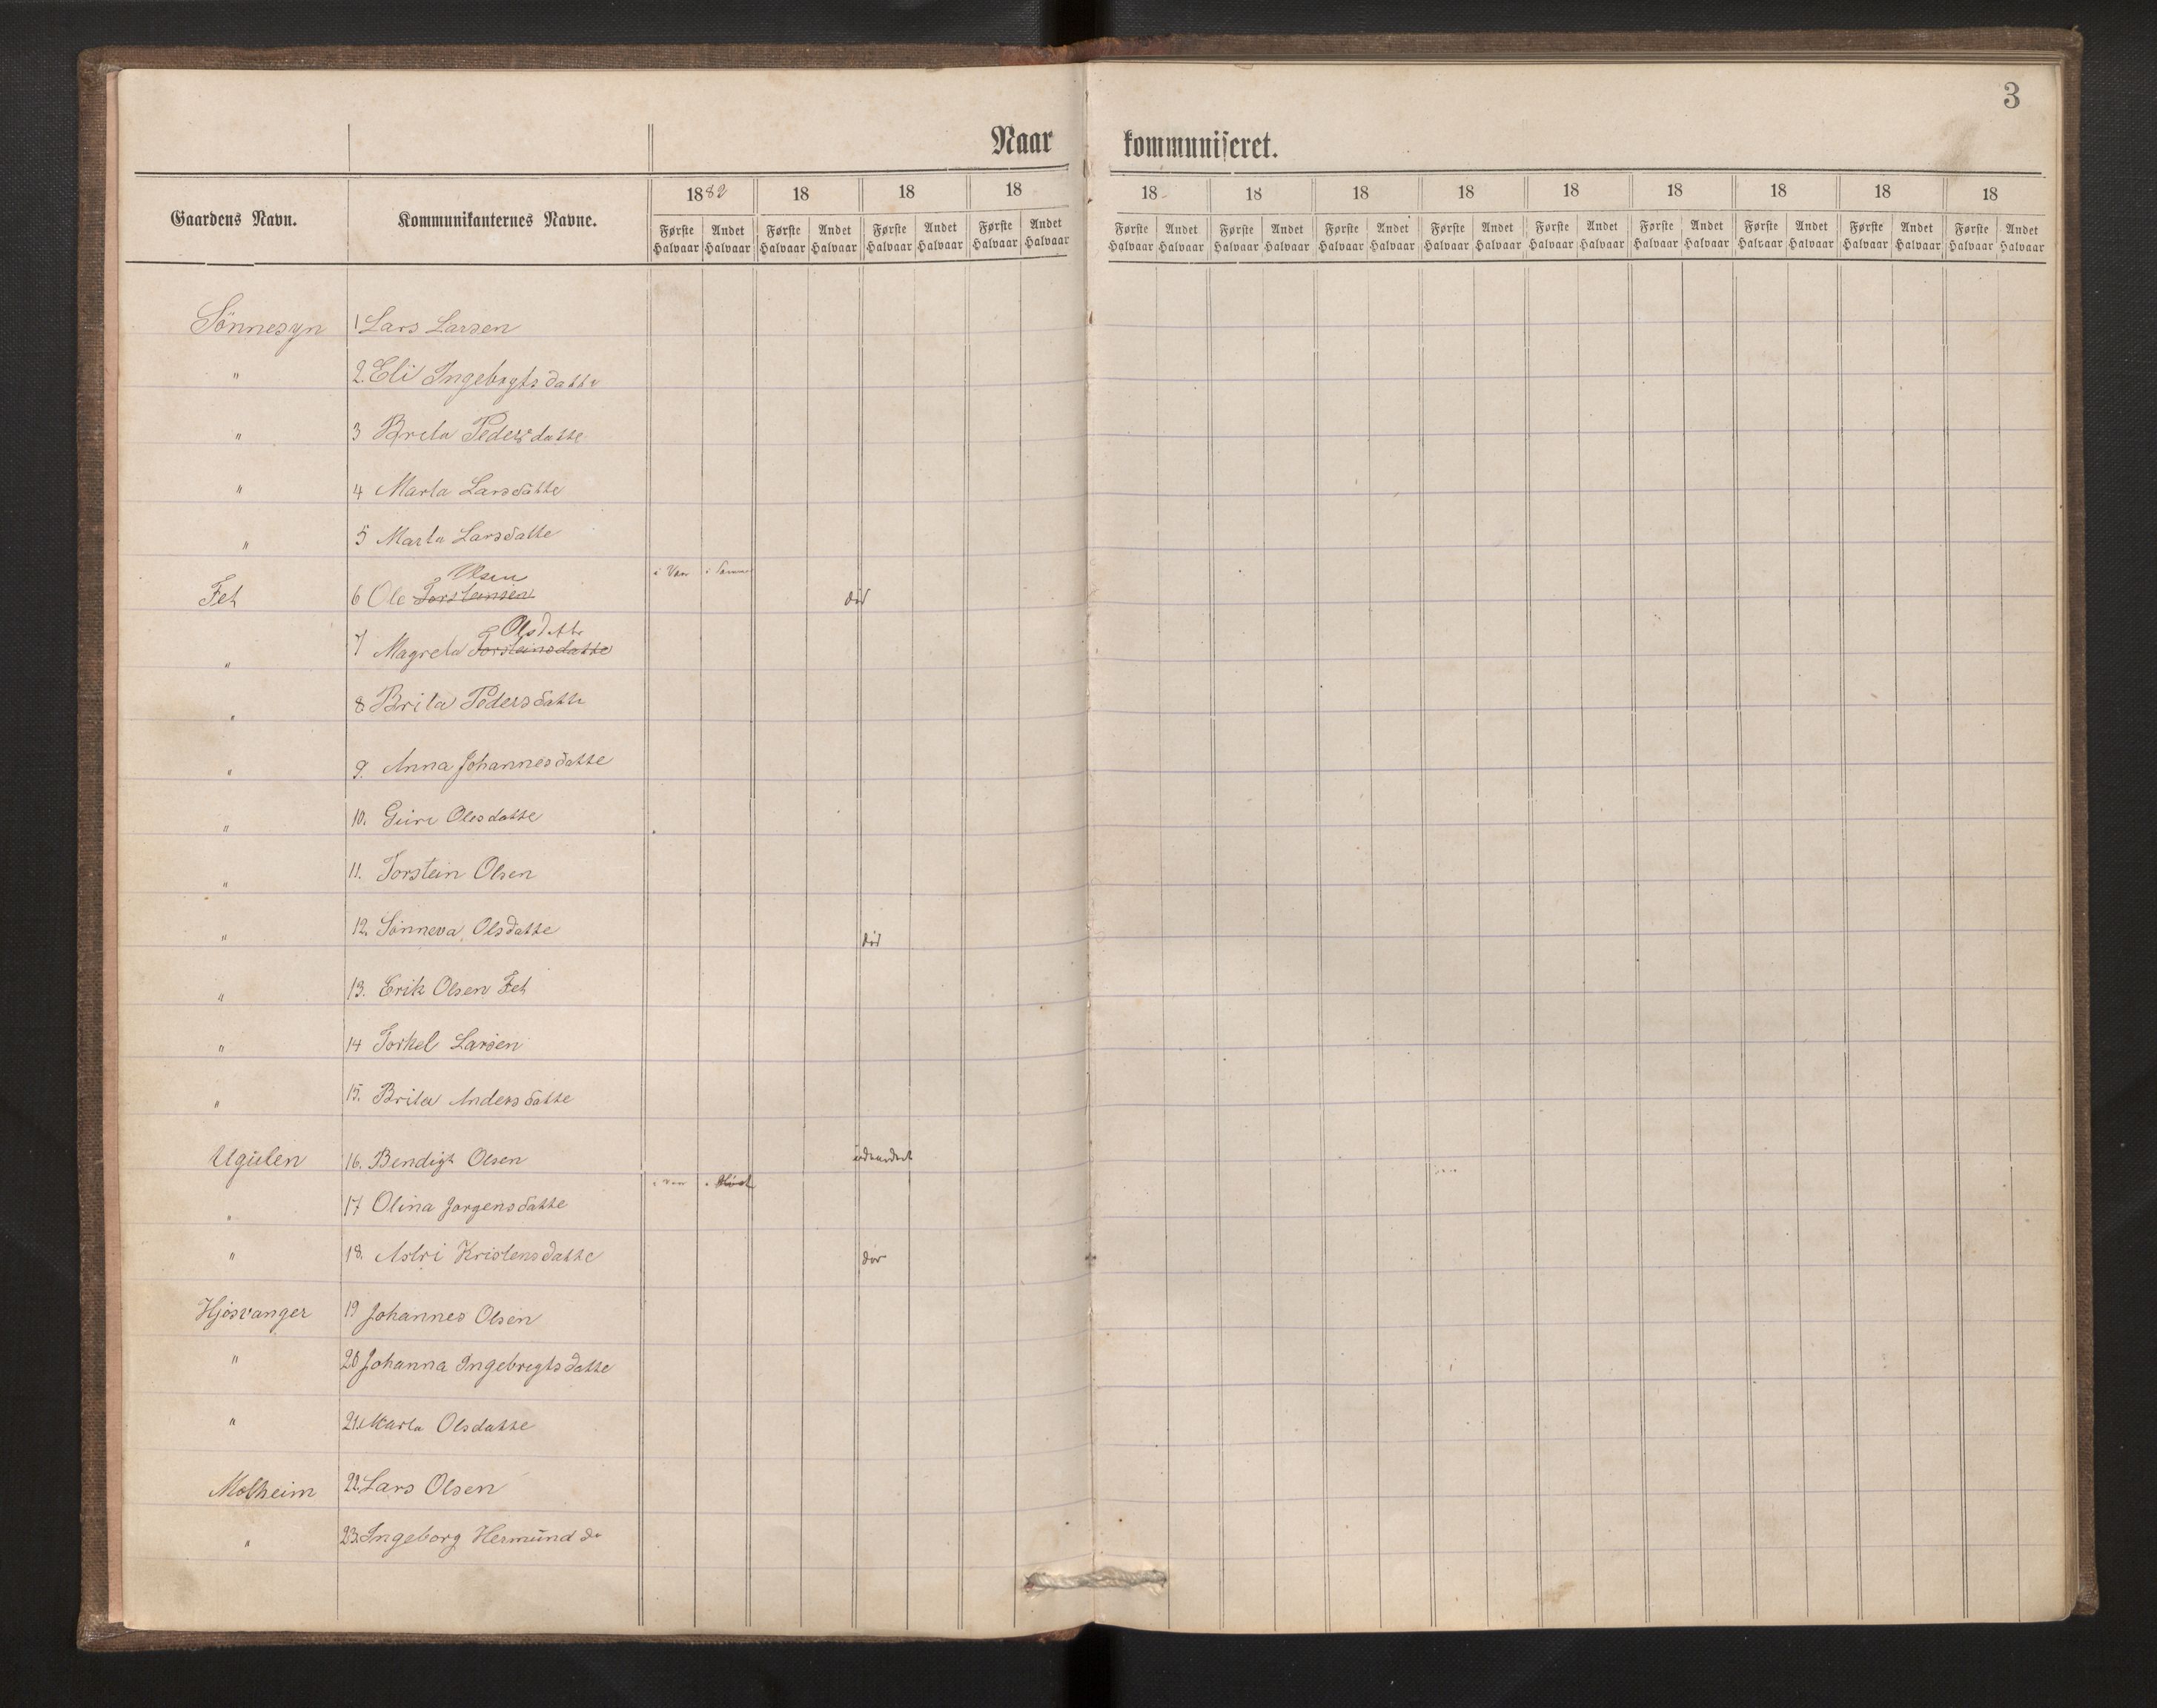 3
Naar kommuniseret.
Gaardens Navn. Kommunikanternes Navne. 1882 18 18 18 18 18 18 18 18 18 18 18 18
Første Halvaar Andet Halvaar Første Halvaar Andet Halvaar Første Halvaar Andet Halvaar Første Halvaar Andet Halvaar Første Halvaar Andet Halvaar Første Halvaar Andet Halvaar Første Halvaar Andet Halvaar Første Halvaar Andet Halvaar Første Halvaar Andet Halvaar Første Halvaar Andet Halvaar Første Halvaar Andet Halvaar Første Halvaar Andet Halvaar Første Halvaar Andet Halvaar
Sönnesyn 1 Lars Larsen
" 2. Eli Ingebrgtsdatte
" 3 Brita Pedersdatte
" 4 Marta Larsdatte
" 5 Marta Larsdatte
Olsen i Vaar i Sommer
Fet 6 Ole Torsteinsen död
Olsdatte
" 7 Magreta Torsteinsdatte
" 8 Brita Pedersdatte
" 9. Anna Johannesdatte
" 10. Guri Olesdatte
" 11. Torstein Olsen
" 12. Sönneva Olsdatte död
" 13. Erik Olsen Fet
" 14 Torkel Larsen
" 15. Brita Andersdatte
Ugulen 16. Bendigt Olsen udvandret
i Vaar i
" 17 Olina Jorgensdatte
" 18. Astri Kristensdatte
Hjosvanger 19 Johannes Olsen
" 20 Johanna Ingebregtsdatte
" 21. Marta Olsdatte
Molheim 22. Lars Olsen
" 23. Ingeborg Hermund da